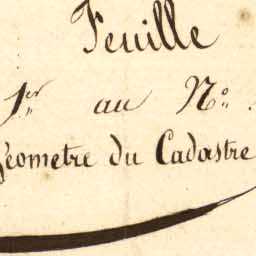 Feuille
1.er au N.o
Géometre du Cadastre